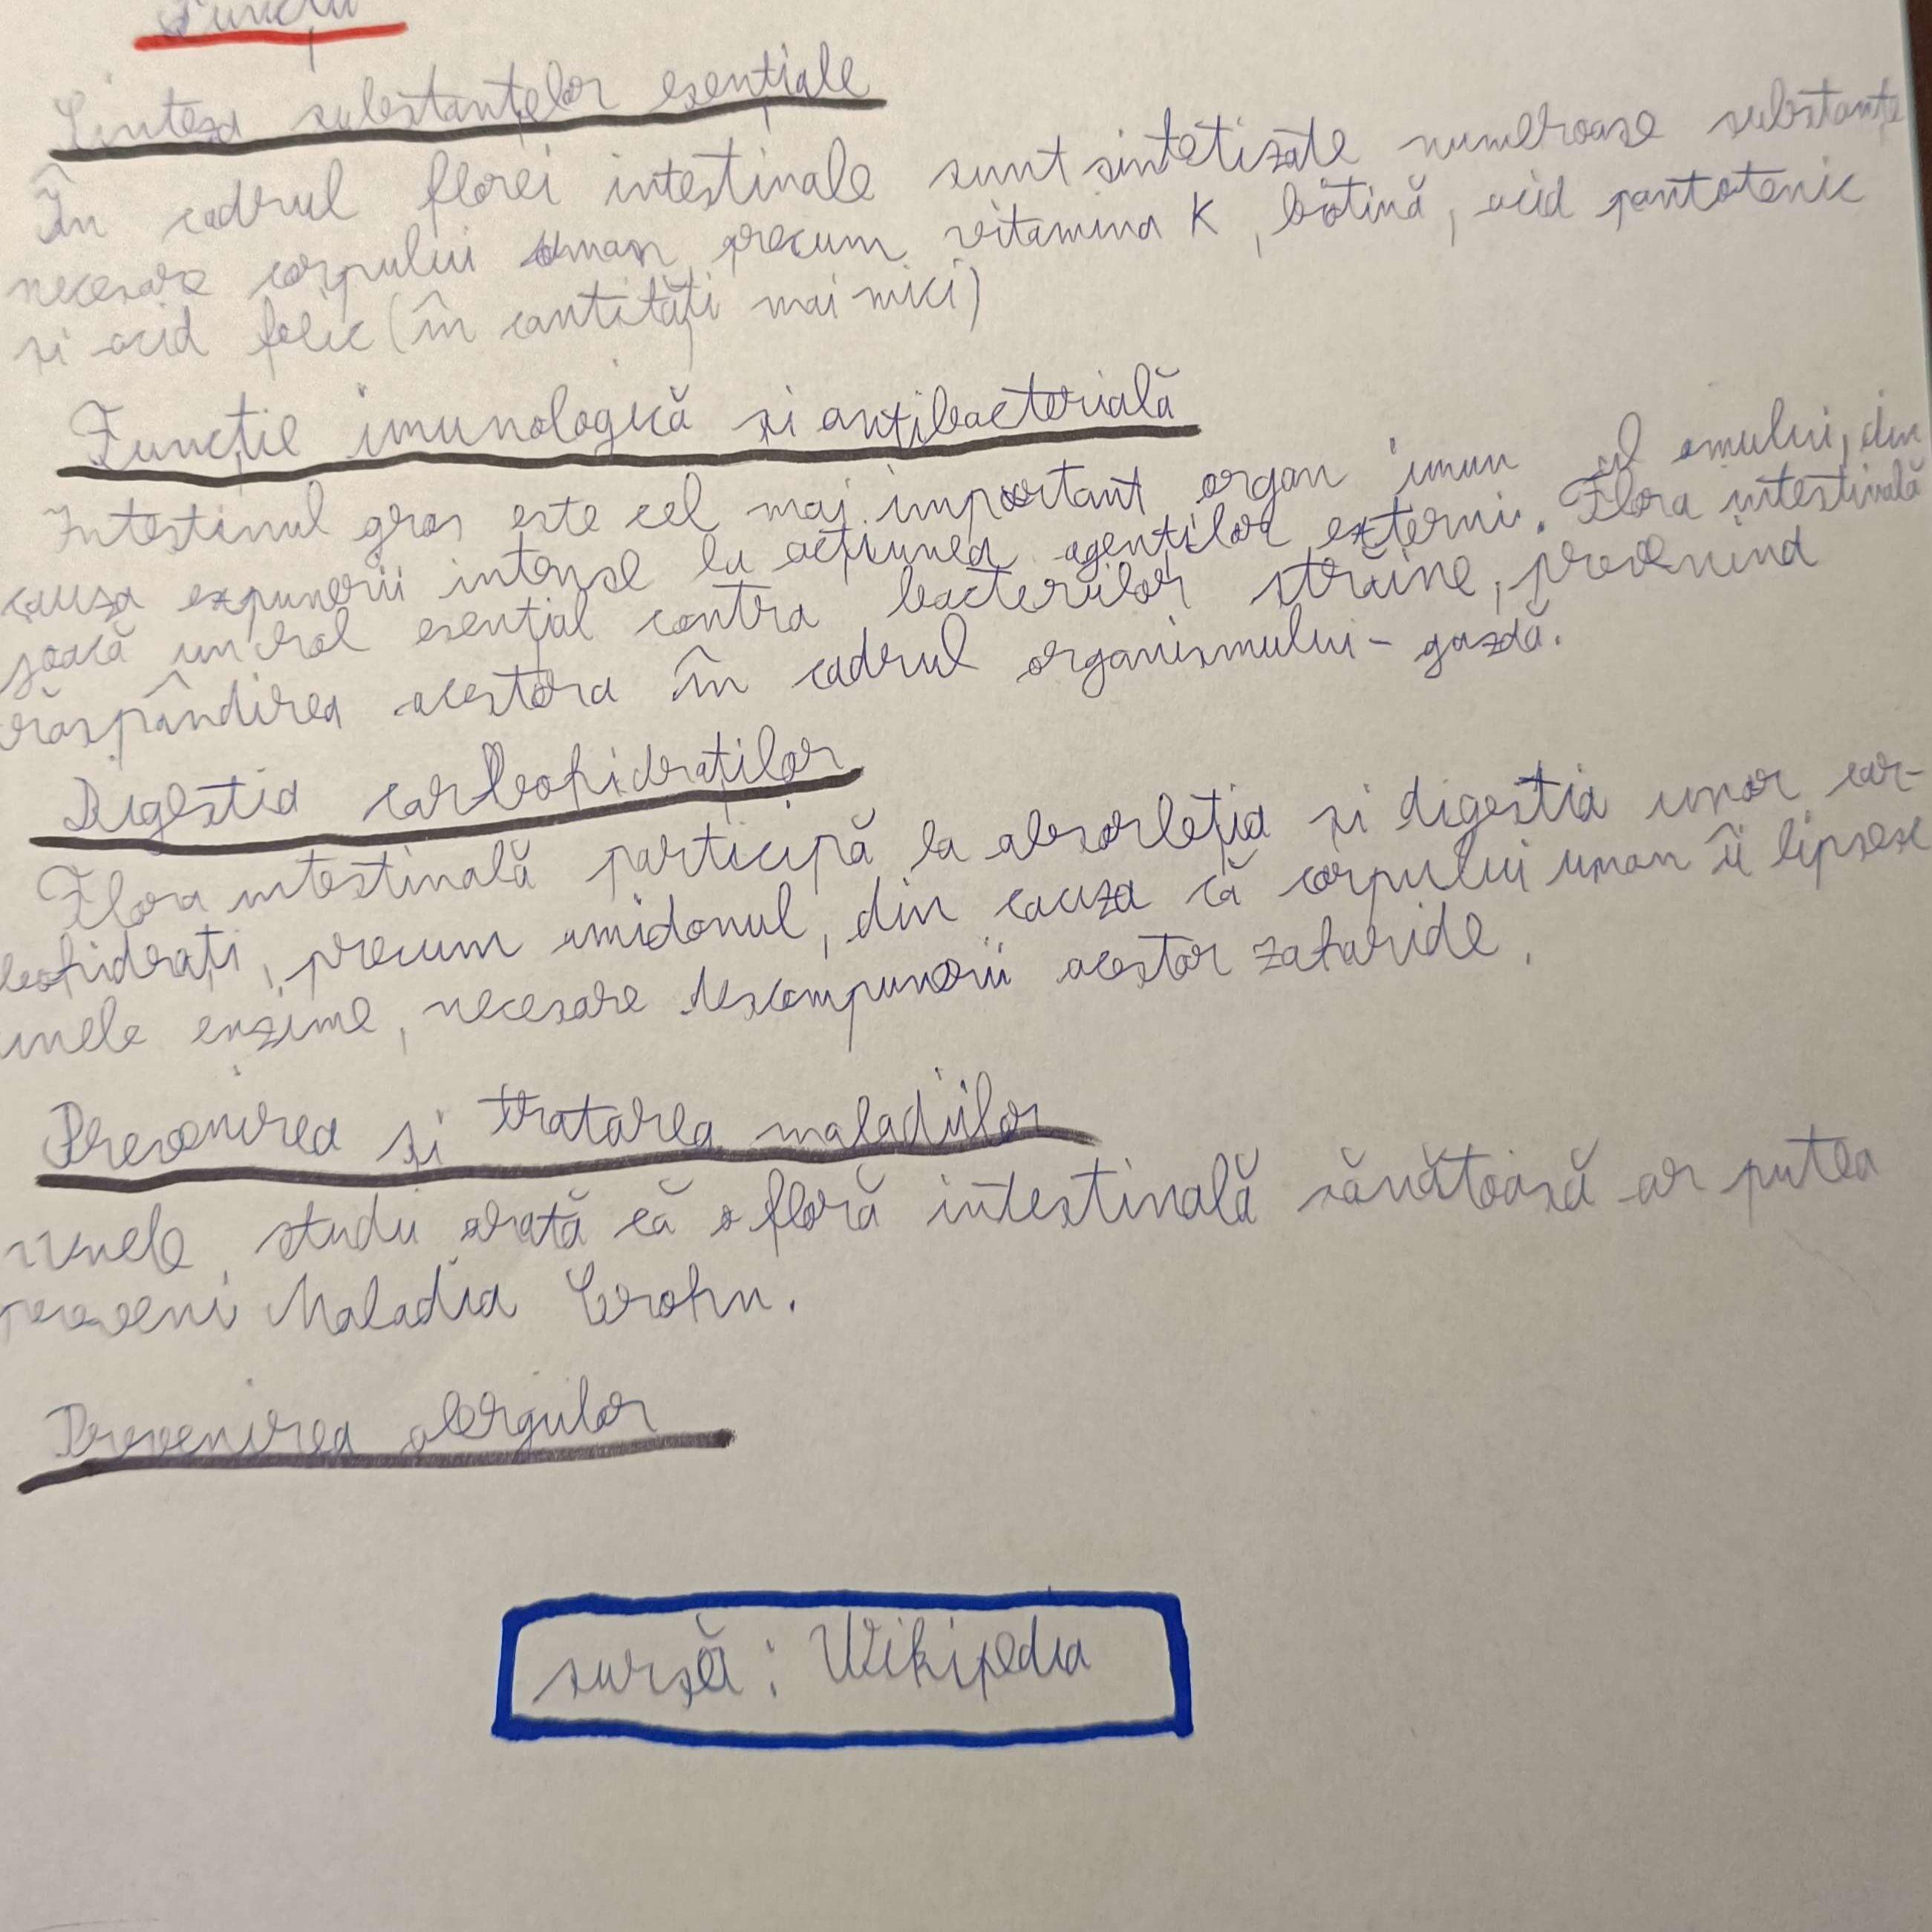 Funcții
Sinteza substanțelor esențiale
În cadrul florei intestinale sunt sintetizate numeroase substanțe
necesare corpului uman precum vitamina K, biotină, acid pantotenic
si acid folic (în cantități mai mici)
Funcție imunologică si antibacterială
Intestinul gros este cel mai important organ imun al omului, din
cauza expunerii intense la acțiunea agenților externi. Flora intestinală
joacă un rol esențial contra bacteriilor străine, prevenind
răspândirea acestora în cadrul organismului-gazdă.
Digestia carbohidraților
Flora intestinală participă la absorbția si digestia unor car-
bohidrați, precum amidonul, din cauza că corpului uman îi lipsesc
unele enzime, necesare descompunerii acestor zaharide.
Prevenirea si tratarea maladiilor
Unele studii arată că o floră intestinală sănătoasă ar putea
preveni Maladia Crohn.
Prevenirea alergiilor
sursă: Wikipedia